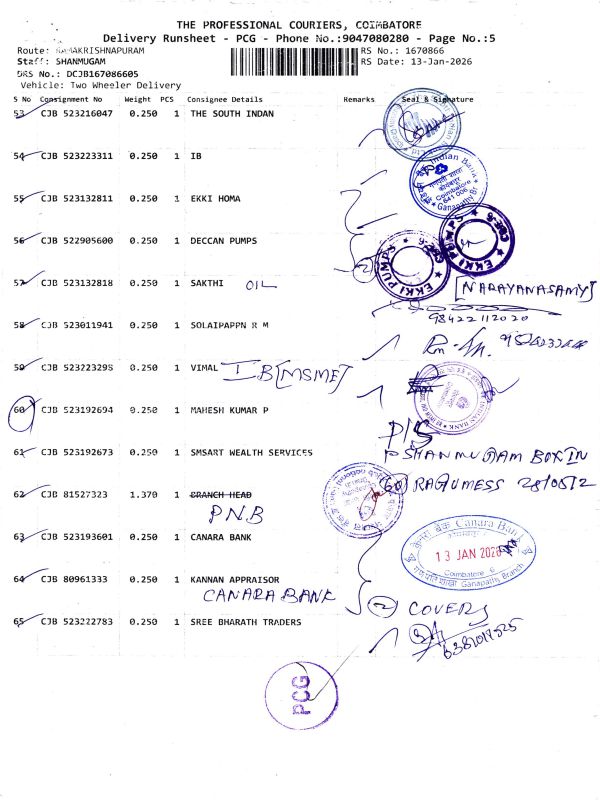 THE PROFESSIONAL COURIERS, COIMBATORE
Delivery Runsheet - PCG - Phone No.:9047080280 - Page No.:5
Route: RAMAKRISHNAPURAM
RS No.: 1670866
Staff: SHANMUGAM
RS Date: 13-Jan-2026
DRS No.: DCJB167086605
Vehicle: Two Wheeler Delivery
S No Consignment No Weight PCS Consignee Details Remarks Seal & Signature
53 CJB 523216047 0.250 1 THE SOUTH INDAN
54 CJB 523223311 0.250 1 IB
Indian Bank
Coimbatore
641 006
Ganapathy Br
55 CJB 523132811 0.250 1 EKKI HOMA
56 CJB 522905600 0.250 1 DECCAN PUMPS
EKKI PUMPS
EKKI PUMPS
2
57 CJB 523132818 0.250 1 SAKTHI OIL
[NARAYANASAMY]
98422112020
58 CJB 523011941 0.250 1 SOLAIPAPPN R M
59 CJB 523223295 0.250 1 VIMAL IB[MSME]
60 CJB 523192694 0.250 1 MAHESH KUMAR P
P/S
61 CJB 523192673 0.250 1 SMSART WEALTH SERVICES
P SHANMUGAM BOX IN
62 CJB 81527323 1.370 1 BRANCH HEAD
(60) RAGUMESS
PNB
63 CJB 523193601 0.250 1 CANARA BANK
केनरा बैंक Canara Bank
13 JAN 2026
Coimbatore 6
Ganapathy Branch
64 CJB 80961333 0.250 1 KANNAN APPRAISOR
CANARA BANK
2 COVERS
65 CJB 523222783 0.250 1 SREE BHARATH TRADERS
PCG